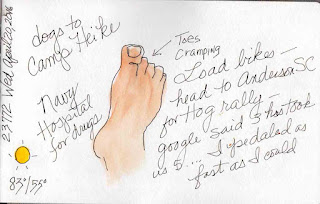 23772 Wed, April 20, 2016
83°/55°
dogs to
Camp Heike
Navy
Hospital
for drugs
Toes
Cramping
Load bikes –
head to Anderson SC
for Hog rally –
google said 3 hrs took
us 5!... I pedaled as
fast as I could